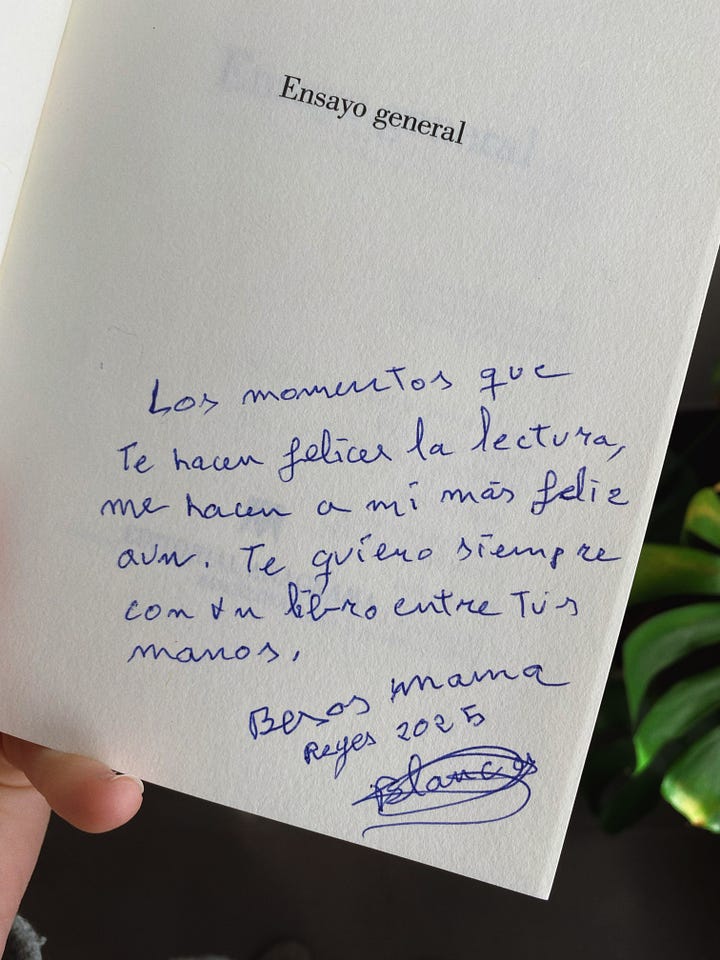 Ensayo general
Los momentos que
Te hacen felices la lectura,
me hacen a mí más feliz
aun. Te quiero siempre
con un libro entre Tus
manos.
Besos mama
Reyes 2025
Blanca